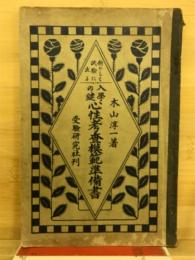 木山淳一著
新らしく
試験に
出る
入學
の鍵
心性考査模範準備書
受驗研究社刊